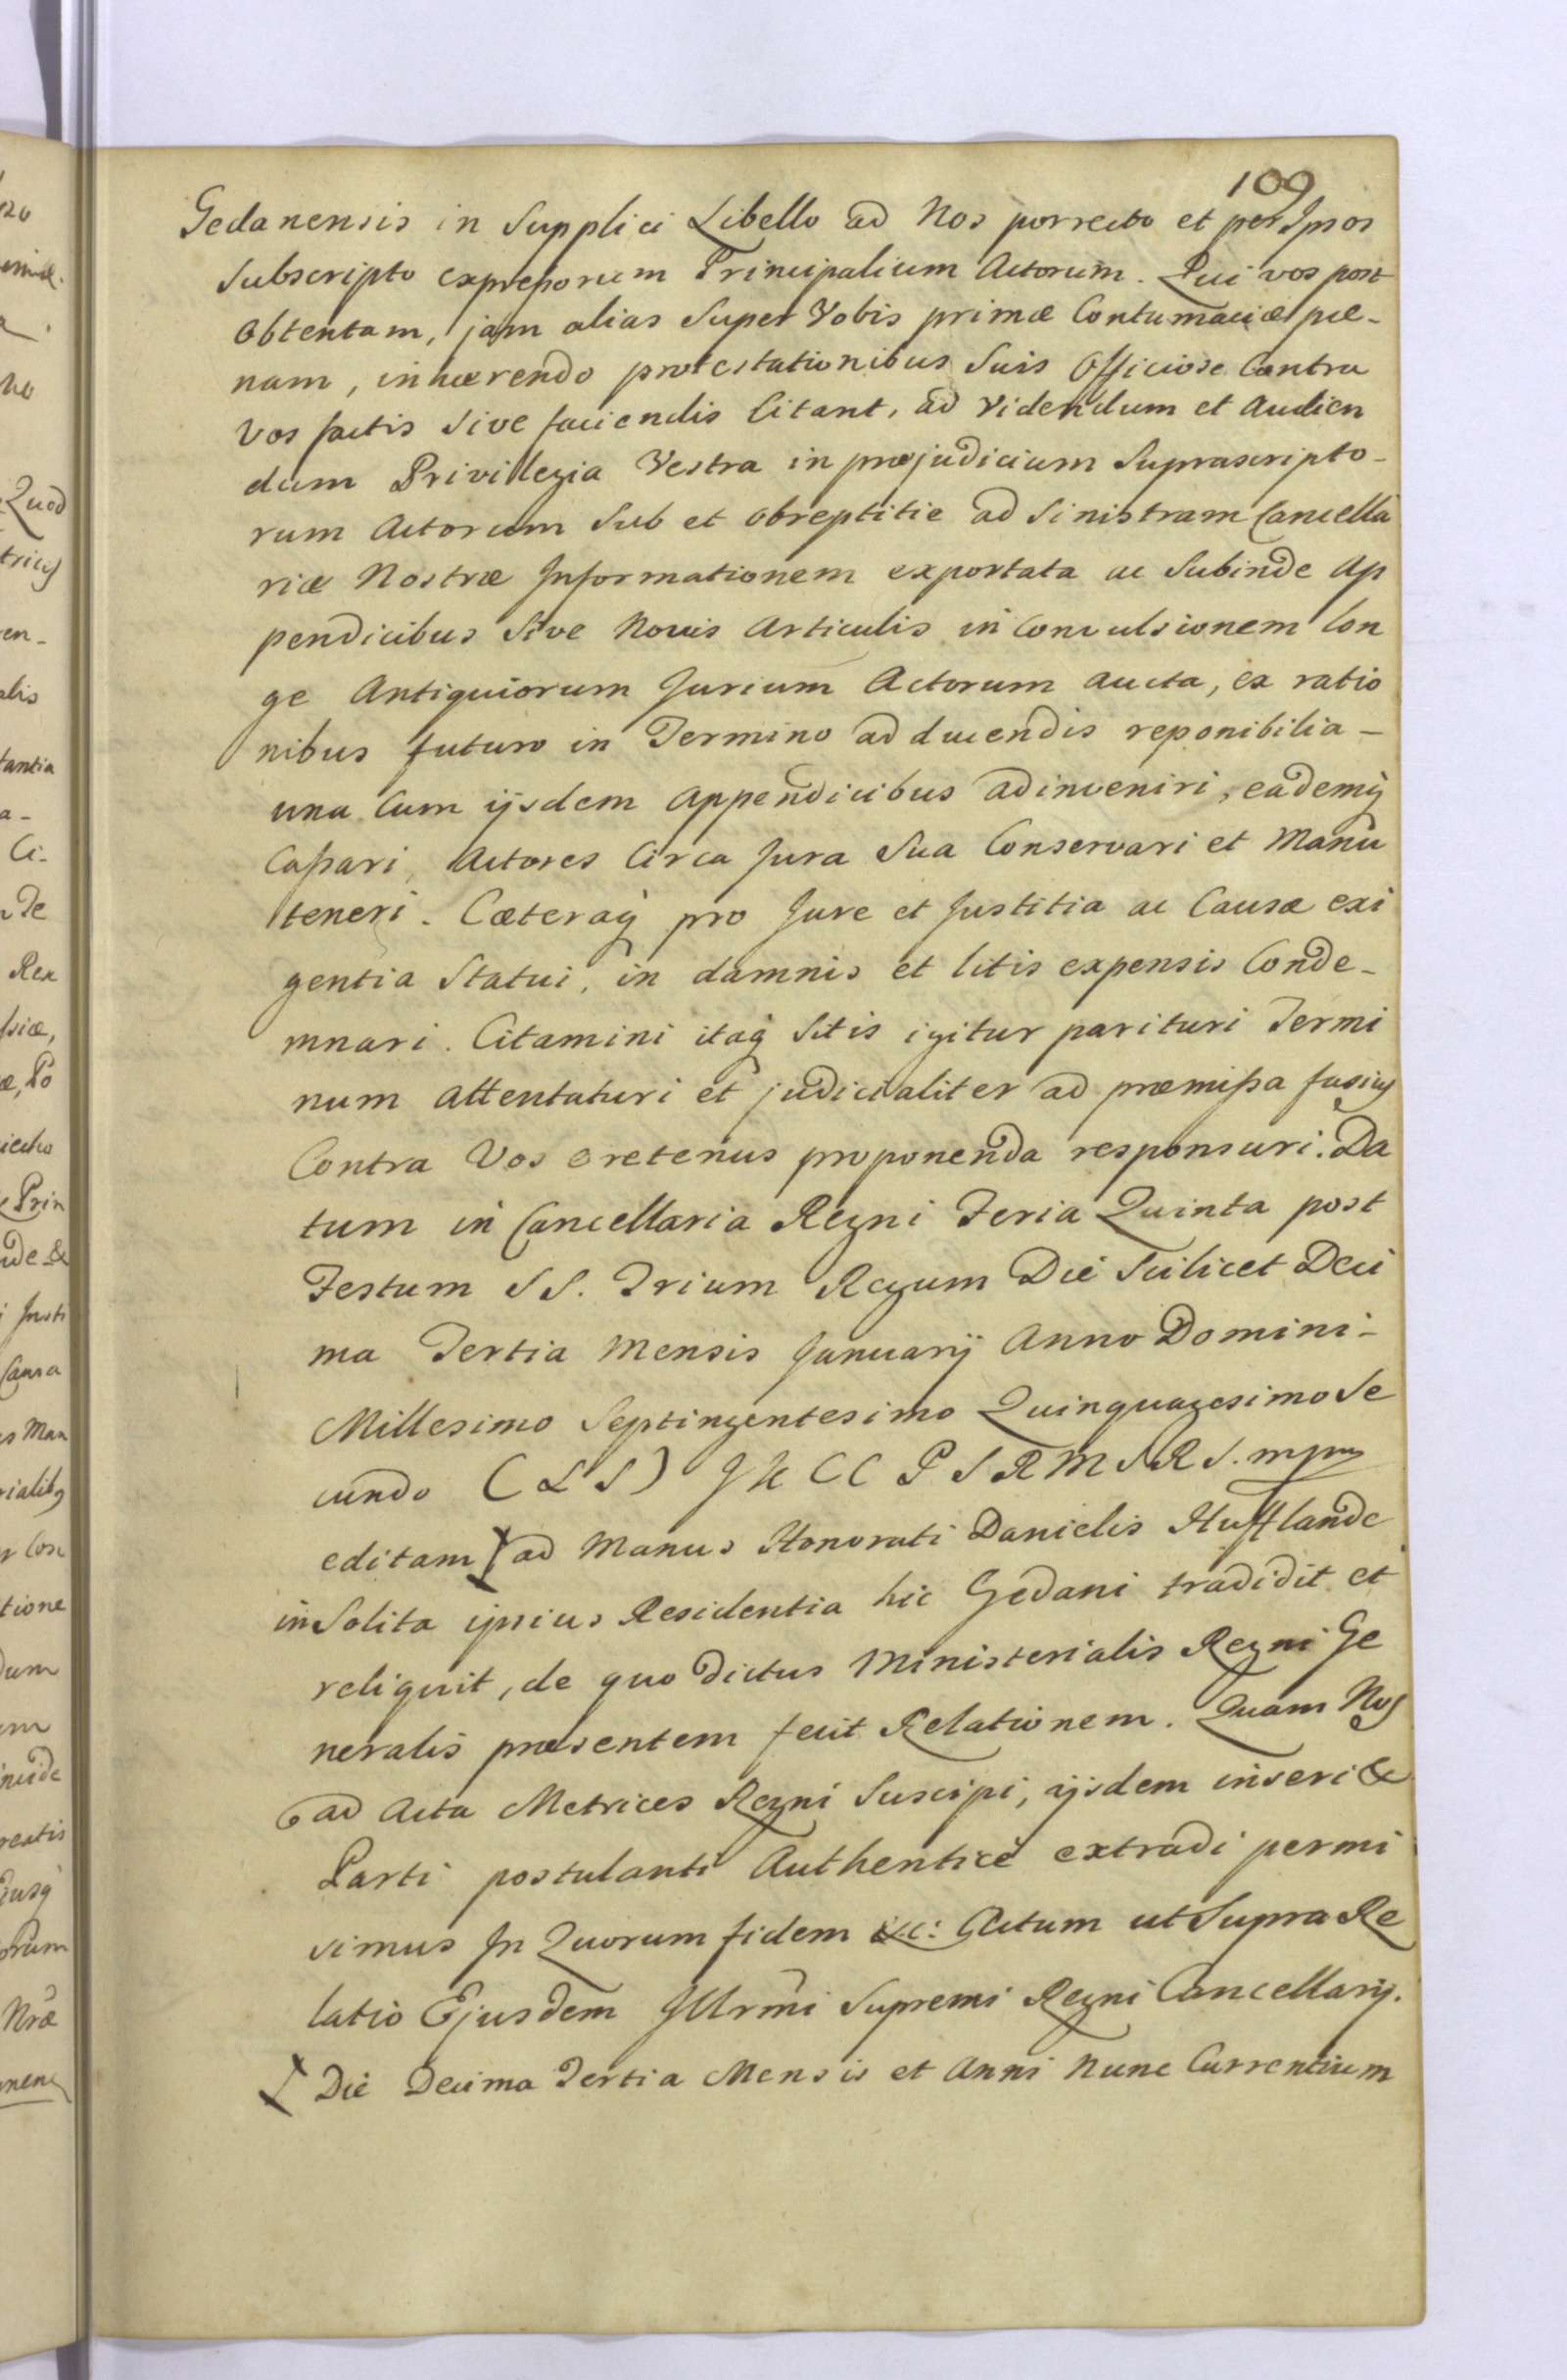 109
Gedanensis in Supplici Libello ad Nos porrecto et per Ipsos
Subscripto expressorum Principalium Actorum. Qui vos post
obtentam, jam alias Super Vobis primæ Contumaciæ pæ-
nam, inhærendo protestationibus Suis Officiose Contra
vos factis sive faciendis Citant, ad Videndum et Audien
dum Privilegia Vestra in præjudicium Suprascripto-
rum Actorum Sub et obreptitie ad Sinistram Cancella
riæ Nostræ Informationem exportata ac Subinde Ap
pendicibus Sive Novis Articulis in Convulsionem lon
ge Antiquiorum Jurium Actorum aucta, ex ratio
nibus futuro in Termino adducendis reponibilia -
una Cum ijsdem Appendicibus adinveniri, eademq
Cassari, Actores Circa Jura Sua Conservari et Manu
teneri. Cæteraq pro Jure et Justitia ac Causæ exi
gentia Statui, in damnis et litis expensis Conde-
mnari. Citamini itaq Sitis igitur parituri Termi
num attentaturi et judicialiter ad præmissa fusius
Contra Vos oretenus proponenda responsuri. Da
tum in Cancellaria Regni Feria Quinta post
Festum SS. Trium Regum Die Scilicet Deci
ma Tertia Mensis Januarij Anno Domini -
Millesimo Septingentesimo Quinquagesimo Se
cundo (LS) CC P S R M S R S. mpp
editam ad Manus Honorati Danielis Hufflande
in Solita ipsius Residentia hic Gedani tradidit et
reliquit, de quo dictus Ministerialis Regni Ge
neralis præsentem fecit Relationem. Quam Nos
ad Acta Metrices Regni Suscipi, ijsdem inseri &
Parti postulanti Authentice extradi permi
simus In Quorum fidem &c: Actum ut Supra Re
latio Ejusdem Illrmi Supremi Regni Cancellarij.
Die Decima Tertia Mensis et Anni Nunc Currentium